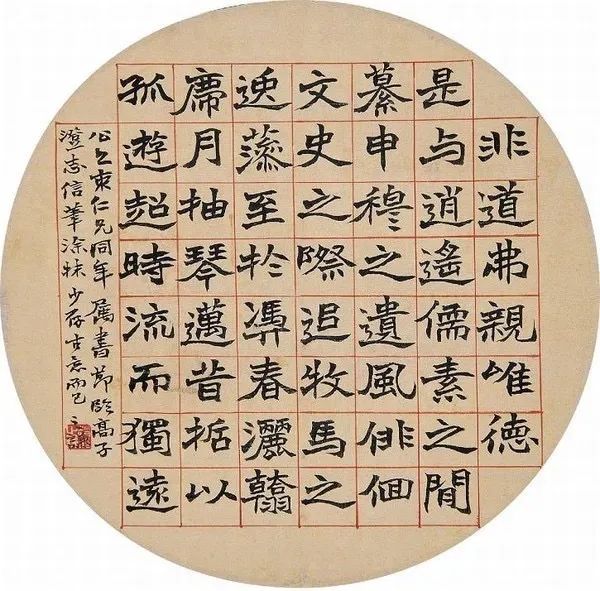 非道弗親唯德
是与逍遙儒素之閒
纂申穆之遺風俳佪
文史之際追牧馬之
逸藻至於馮春灑翰
席月抽琴邁昔哲以
孤遊超時流而獨遠
仁兄同年属書節臨高子
澄志信筆塗抹少存古意而已